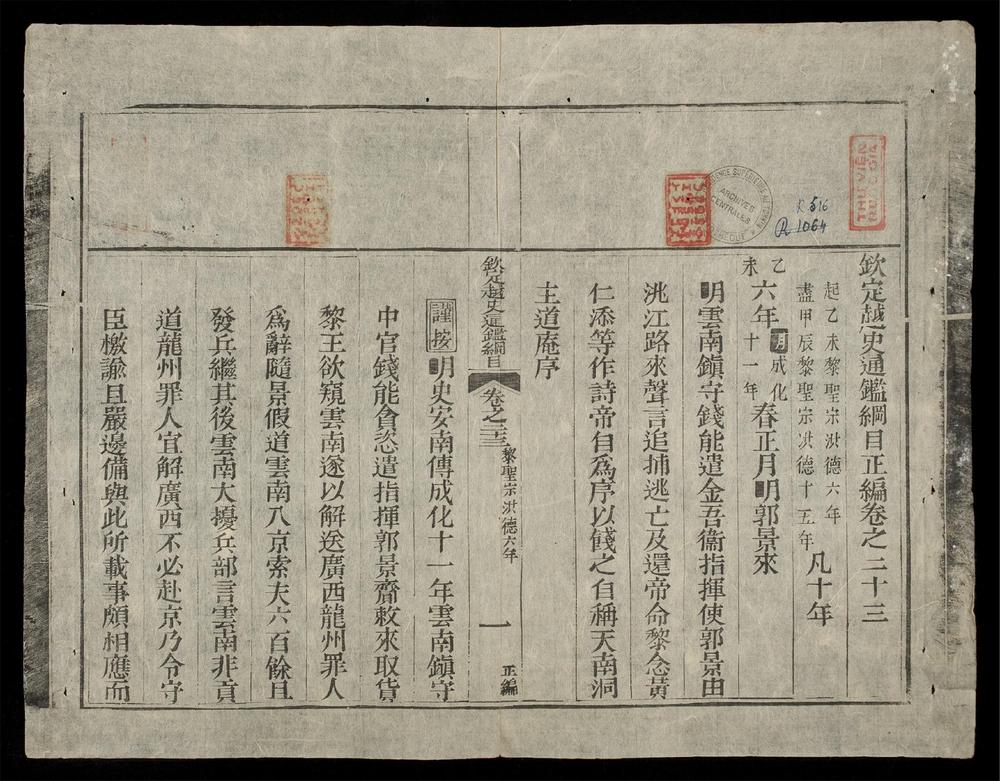 欽定越史通鑑綱目正編卷之二十三
起乙未黎聖宗洪德六年
盡甲辰黎聖宗洪德十五年
凡十年
乙未
六年
明成化
十一年
春正月明郭景來
明雲南鎮守錢能遣金吾衞指揮使郭景由
洮江路來聲言追捕逃亡及還帝命黎念黃
仁添等作詩帝自爲序以餞之自稱天南洞
主道庵序
欽定越史通鑑綱目
卷之二十三
黎聖宗洪德六年
一
正編
謹按
明史安南傳成化十一年雲南鎮守
中官錢能貪恣遣指揮郭景齎敕來取貨
黎王欲窺雲南遂以解送廣西龍州罪人
爲辭隨景假道雲南入京索夫六百餘且
發兵繼其後雲南大擾兵部言雲南非貢
道龍州罪人宜解廣西不必赴京乃令守
臣檄諭且嚴邊備與此所載事頗相應而
THƯ VIỆN
QUỐC GIA
ARCHIVES
CENTRALES
R 516
R 1064